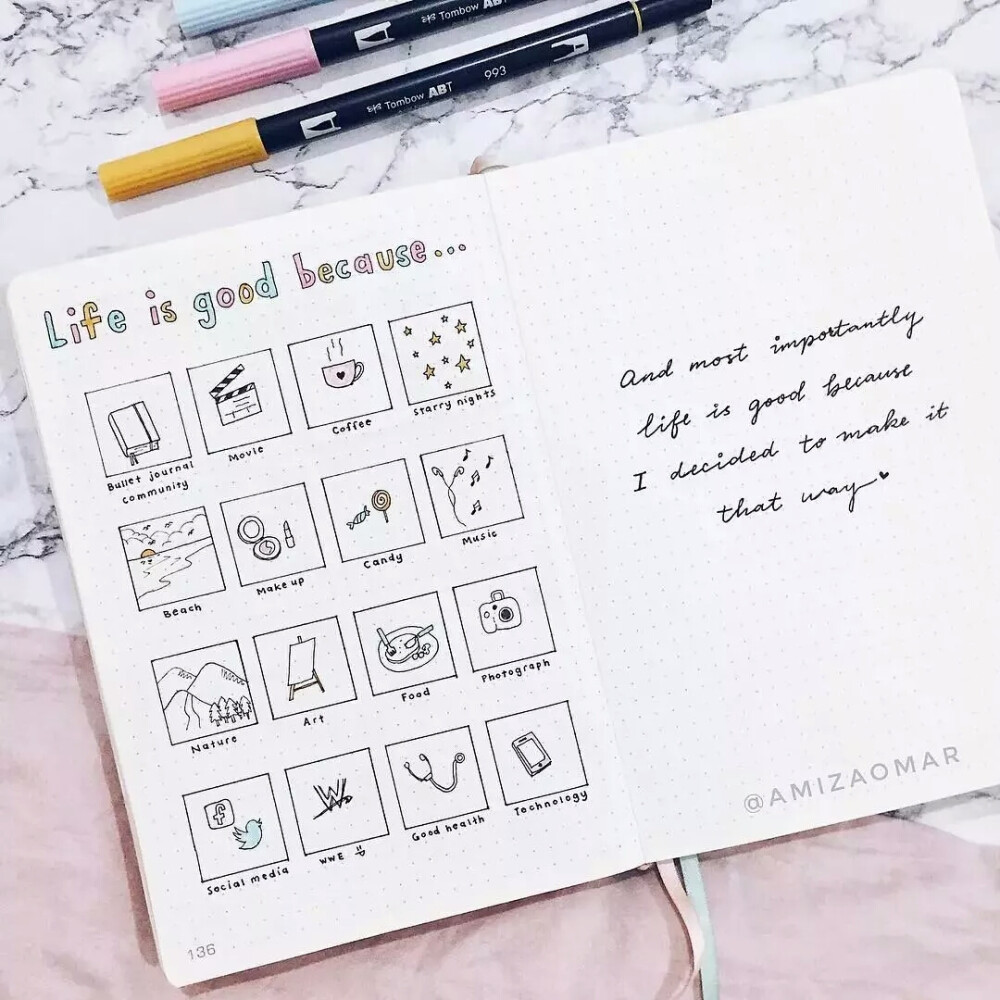 Tombow ABT
993
Tombow ABT
Life is good because...
Bullet journal
community
Movie
Coffee
Starry nights
Beach
Make up
Candy
Music
Nature
Art
Food
Photograph
f
Social media
W
WWE
Good health
Technology
136
And most importantly
life is good because
I decided to make it
that way
@AMIZAOMAR